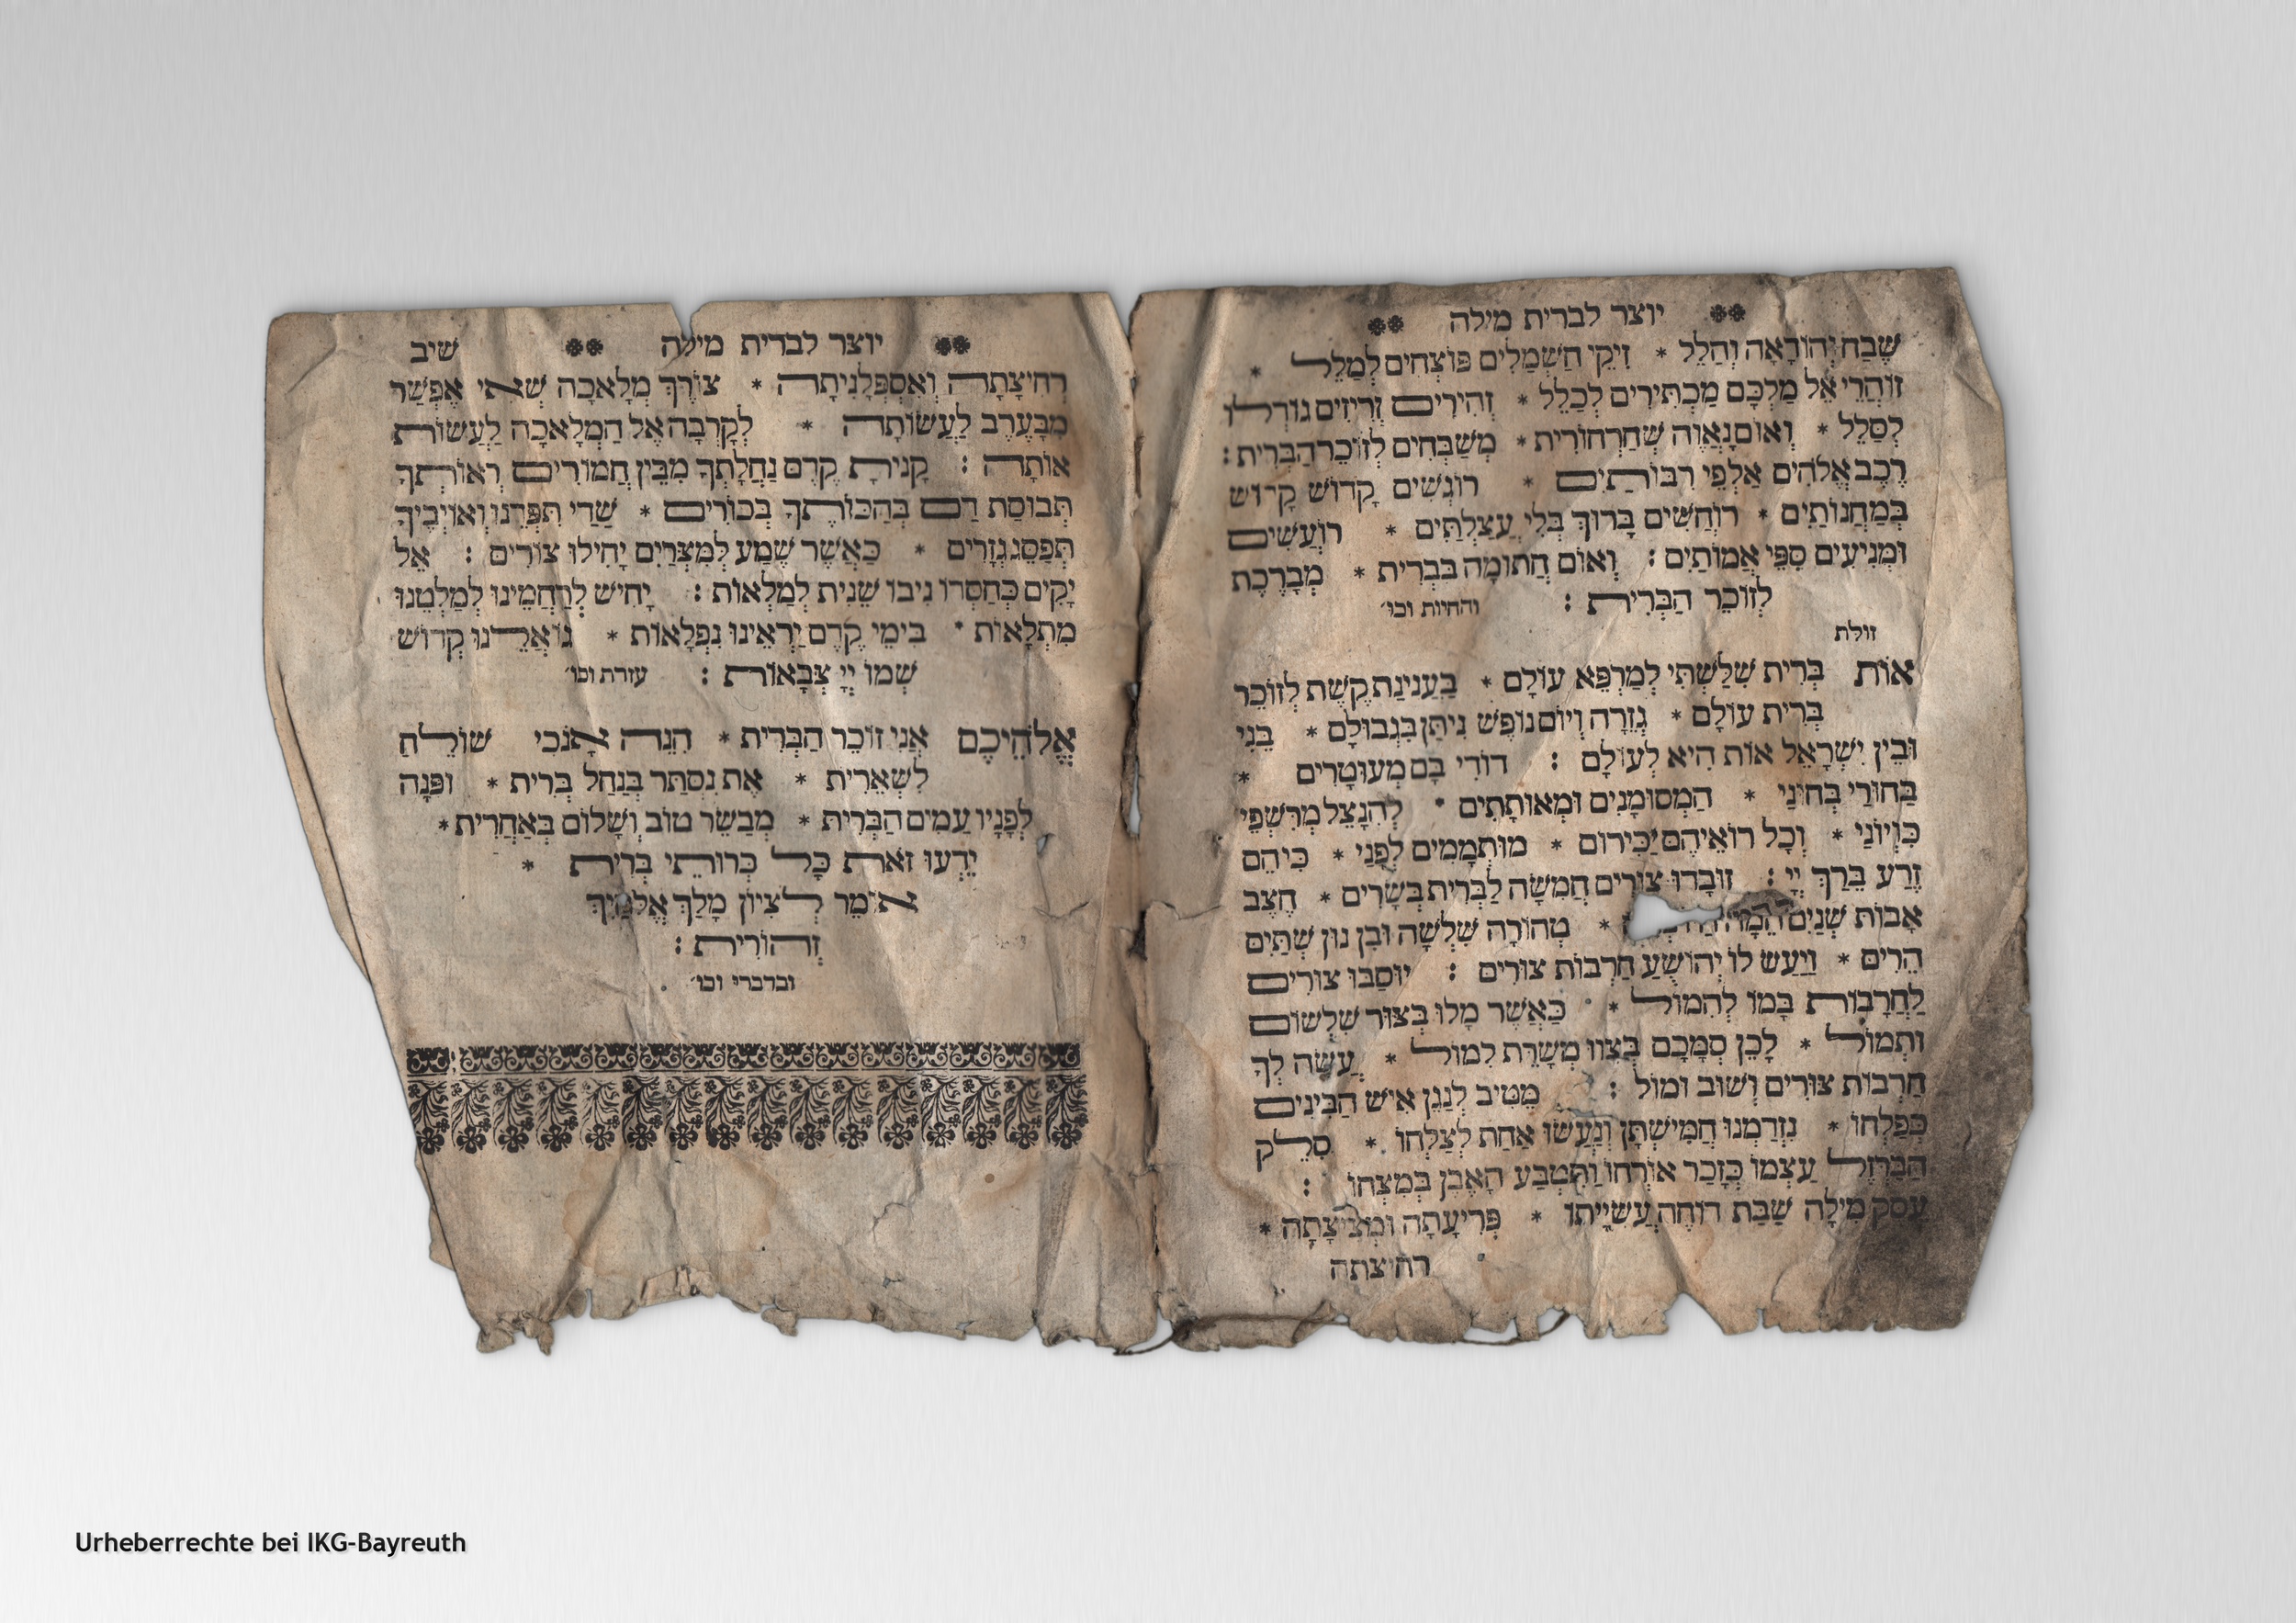 יוצר לברית מילה
שֶׁבַח וְהוֹרָאָה וְהַלֵל * זִיקֵי חַשְׁמַלִים פּוֹצְחִים לְמַלֵל *
זוֹהֲרֵי אֵל מַלְכָּם מַכְתִּירִים לְכַלֵל * זְהִירִים זְרִיזִים גוֹרלוֹ
לְסַלֵל * וְאוֹם נָאֲוָה שְׁחַרְחוֹרִית * מְשַׁבְּחִים לְזוֹכֵר הַבְּרִית :
רֶכֶב אֱלֹהִים אַלְפֵי רִבּוֹתַיִם * רוֹגְשִׁים קָדוֹשׁ קָדוֹשׁ
בְּמַחֲנוֹתַיִם * רוֹחֲשִׁים בָּרוּךְ בְּלִי עֲצַלְתַּיִם * רוֹעֲשִׁים
וּמְנִיעִים סִפֵּי אַמוֹתַיִם : וְאוֹם חֲתוּמָה בִּבְרִית * מְבָרֶכֶת
לְזוֹכֵר הַבְּרִית : והחיות וכו׳
זולת
אוֹת בְּרִית שִׁלַּשְׁתִּי לְמַרְפֵּא עוֹלָם * בַּעֲנִינַת קֶשֶׁת לִזְכּוֹר
בְּרִית עוֹלָם * גְזֵרָה וְיוֹם נוֹפֶשׁ נִיתַּן בִּגְבוּלָם * בֵּנִי
וּבֵין יִשְׂרָאֵל אוֹת הִיא לְעוֹלָם : דוֹרִי בָּם מְעוּטָרִים *
בַּחוּרַי בְּחִינַי * הַמְסוּמָנִים וּמְאוּתָתִים * לְהִנָּצֵל מְרִשְׁפֵּי
כִּוְיוֹנַי * וְכָל רוֹאֵיהֶם יַכִּירוּם * מוּתְמָמִים לְפָנַי * כִּי הֵם
זֶרַע בֵּרַךְ יְיָ : זוֹבָדוּ צוּרִים חֲמִשָּׁה לַבְּרִית בְּשָׂרִים * חֶצֶב
אָבוֹת שְׁנַיִם הֵמָּה * טְהוֹרָה שְׁלֹשָׁה וּבִן נוּן שְׁתַּיִם
הֵרִים * וַיַּעַשׂ לוֹ יְהוֹשֻׁעַ חַרְבוֹת צוּרִים : יוּסַבּוּ צוּרִים
לַחֲרָבוֹת בָּמוֹ לְהִמּוֹל * כַּאֲשֶׁר מָלוּ בְּצוּר שִׁלְשׁוֹם
וּתְמוֹל * לָכֵן סְמָכָם בְּצִוּוּי מְשָׁרֵת לִמּוֹל * עֲשֵׂה לְךָ
חַרְבוֹת צוּרִים וְשׁוּב וּמוֹל : מֵטִיב לְנַגֵן אִישׁ הַבֵּינַיִם
כְּפַלְחוֹ * נִזְדַמְּנוּ חֲמִישְׁתָּן וְנַעֲשׂוּ אַחַת לְצַלְּחוֹ * סִלֵק
הַבַּרְזֶל עַצְמוֹ כְּזָכַר אוֹרְחוֹ וַתִּטְבַּע הָאֶבֶן בְּמִצְחוֹ :
עֵסֶק מִילָה שַׁבָּת דּוֹחָה עֲשִׂיָּיתוֹ * פְּרִיעָתָהּ וּמְצִיצָתָהּ *
רחיצתה
יוצר לברית מילה שיב
רְחִיצָתָהּ וְאִסְפְּלָנִיתָהּ * צוֹרֶךְ מְלָאכָה שֶׁאִי אֶפְשַׁר
מִבָּעֶרֶב לַעֲשׂוֹתָהּ * לְקָרְבָה אֶל הַמְלָאכָה לַעֲשׂוֹת
אוֹתָהּ : קָנִיתָ קֶדֶם נַחֲלָתְךָ מִבֵּין חֲמוֹרִים וְאוֹתְךָ
תְּבוּסַת דַם בְּהַכּוֹתְךָ בְּכוֹרִים * שַׁדַי תִּפְדֵנוּ וְאוֹיְבֶיךָ
תְּפַסֵּג גְזָרִים * כַּאֲשֶׁר שֶׁמַע לְמִצְרַיִם יָחִילוּ צוֹרִים : אֵל
יָקִים כְּחַסְדוֹ נִיבוֹ שֵׁנִית לְמַלְאוֹת : יָחִישׁ לְרַחֲמֵינוּ לְמַלְּטֵנוּ
מִתְּלָאוֹת * בִּימֵי קֶדֶם יַרְאֵינוּ נִפְלָאוֹת * גוֹאֲלֵנוּ קְדוֹשׁ
שְׁמוֹ יְיָ צְבָאוֹת : עזרת וכו׳
אֱלֹהֵיכֶם אֲנִי זוֹכֵר הַבְּרִית * הִנֵּה אָנֹכִי שׁוֹלֵחַ
לִשְׁאֵרִית * אֶת נִסְתַּר בְּנַחַל בְּרִית * וּפִנָּה
לְפָנָיו עַמִּים הַבְּרִית * מְבַשֵּׂר טוֹב וְשָׁלוֹם בְּאַחֲרִית *
יֵדְעוּ זֹאת כָּל כְּרוּתֵי בְּרִית *
אוֹמֵר לְצִיּוֹן מָלַךְ אֱלֹהָיִךְ
זְהוֹרִית :
ובדברי וכו׳
Urheberrechte bei IKG-Bayreuth